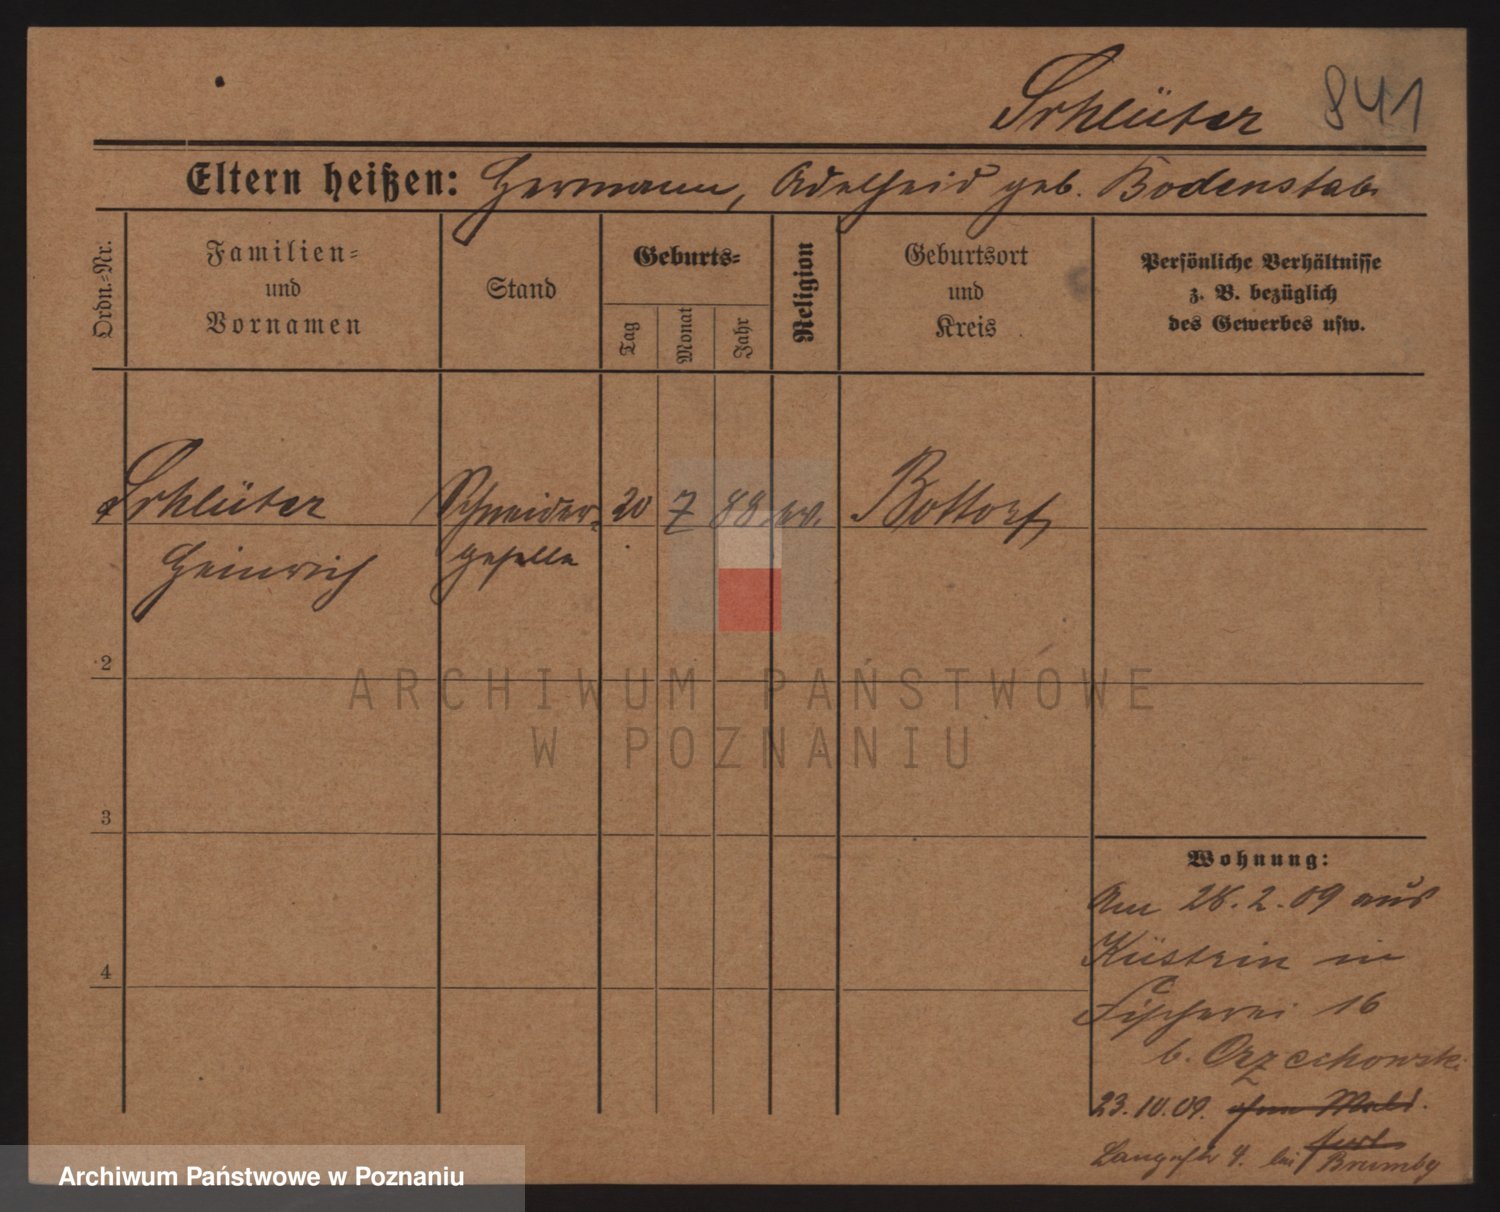 Schlüter 841
Eltern heißen: Hermann, Adelheid geb. Bodenstab
Ordn.-Nr.
Familien-
und
Vornamen
Stand
Geburts-
Tag
Monat
Jahr
Religion
Geburtsort
und
Kreis
Persönliche Verhältnisse
z. B. bezüglich
des Gewerbes usw.
Schlüter Schneider- 20 7 88 ev. Bottorf
Heinrich geselle
2
ARCHIWUM PAŃSTWOWE
W POZNANIU
3
Wohnung:
Am 28.2.09 aus
Küstrin in
Fischerei 16
b. Orzechowski
4
23.10.09. ohne Meld.
4. bei Brumby
Archiwum Państwowe w Poznaniu